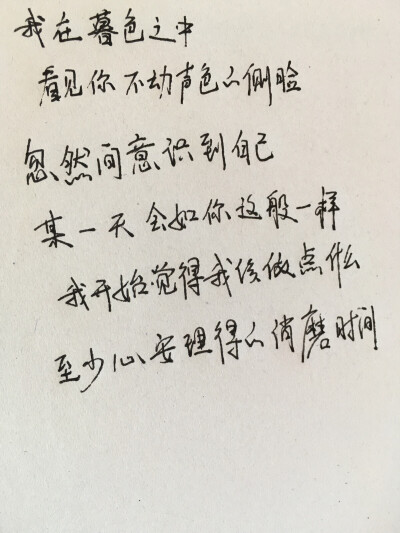 我在暮色之中
看见你不动声色的侧脸
忽然间意识到自己
某一天会如你这般一样
我开始觉得我该做点什么
至少心安理得的消磨时间